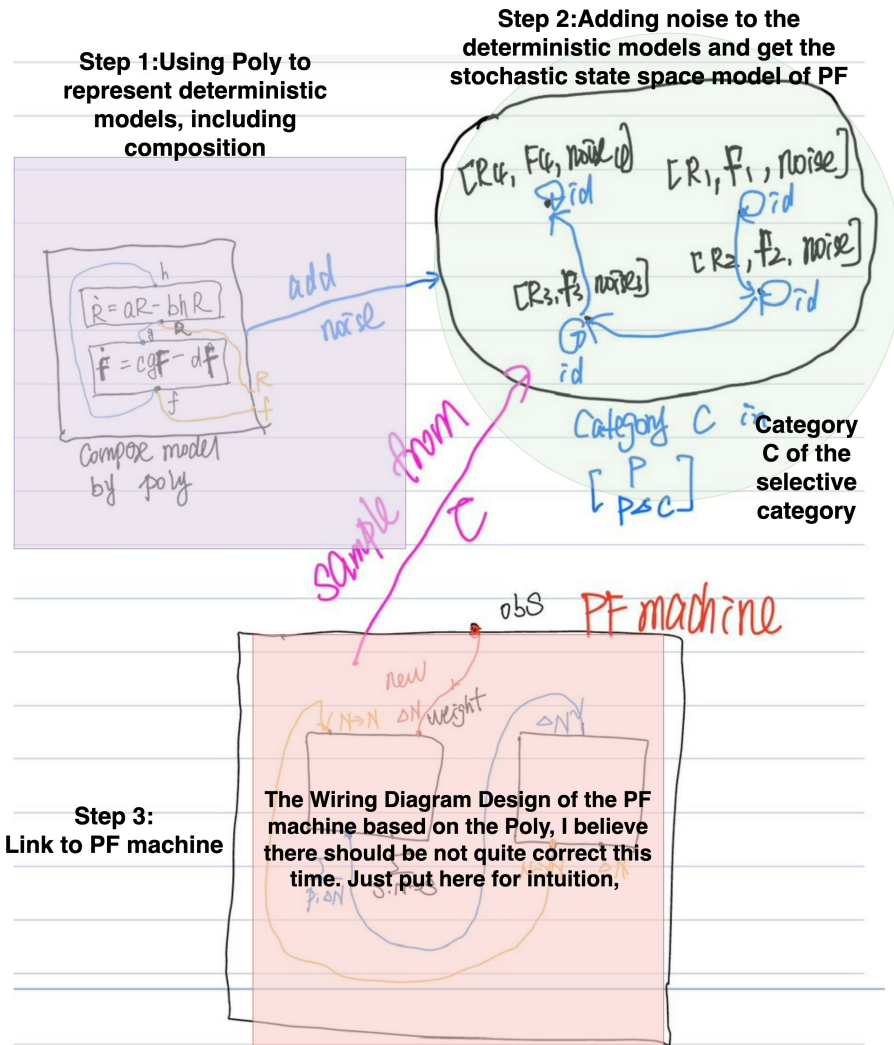 Step 1:Using Poly to
represent deterministic
models, including
composition
Step 2:Adding noise to the
deterministic models and get the
stochastic state space model of PF
[R4, F4, noise4]
id
[R1, f1, noise]
id
[R2, f2, noise]
id
[R3, f3, noise3]
id
h
Ṙ = aR - bhR
g R
Ḟ = cgF - dF
f
R
f
Compose model
by poly
add
noise
Category C in
[P
P◁C]
Category
C of the
selective
category
sample from
C
obs
PF machine
new
N→N ΔN weight
ΔN
Step 3:
Link to PF machine
The Wiring Diagram Design of the PF
machine based on the Poly, I believe
there should be not quite correct this
time. Just put here for intuition,